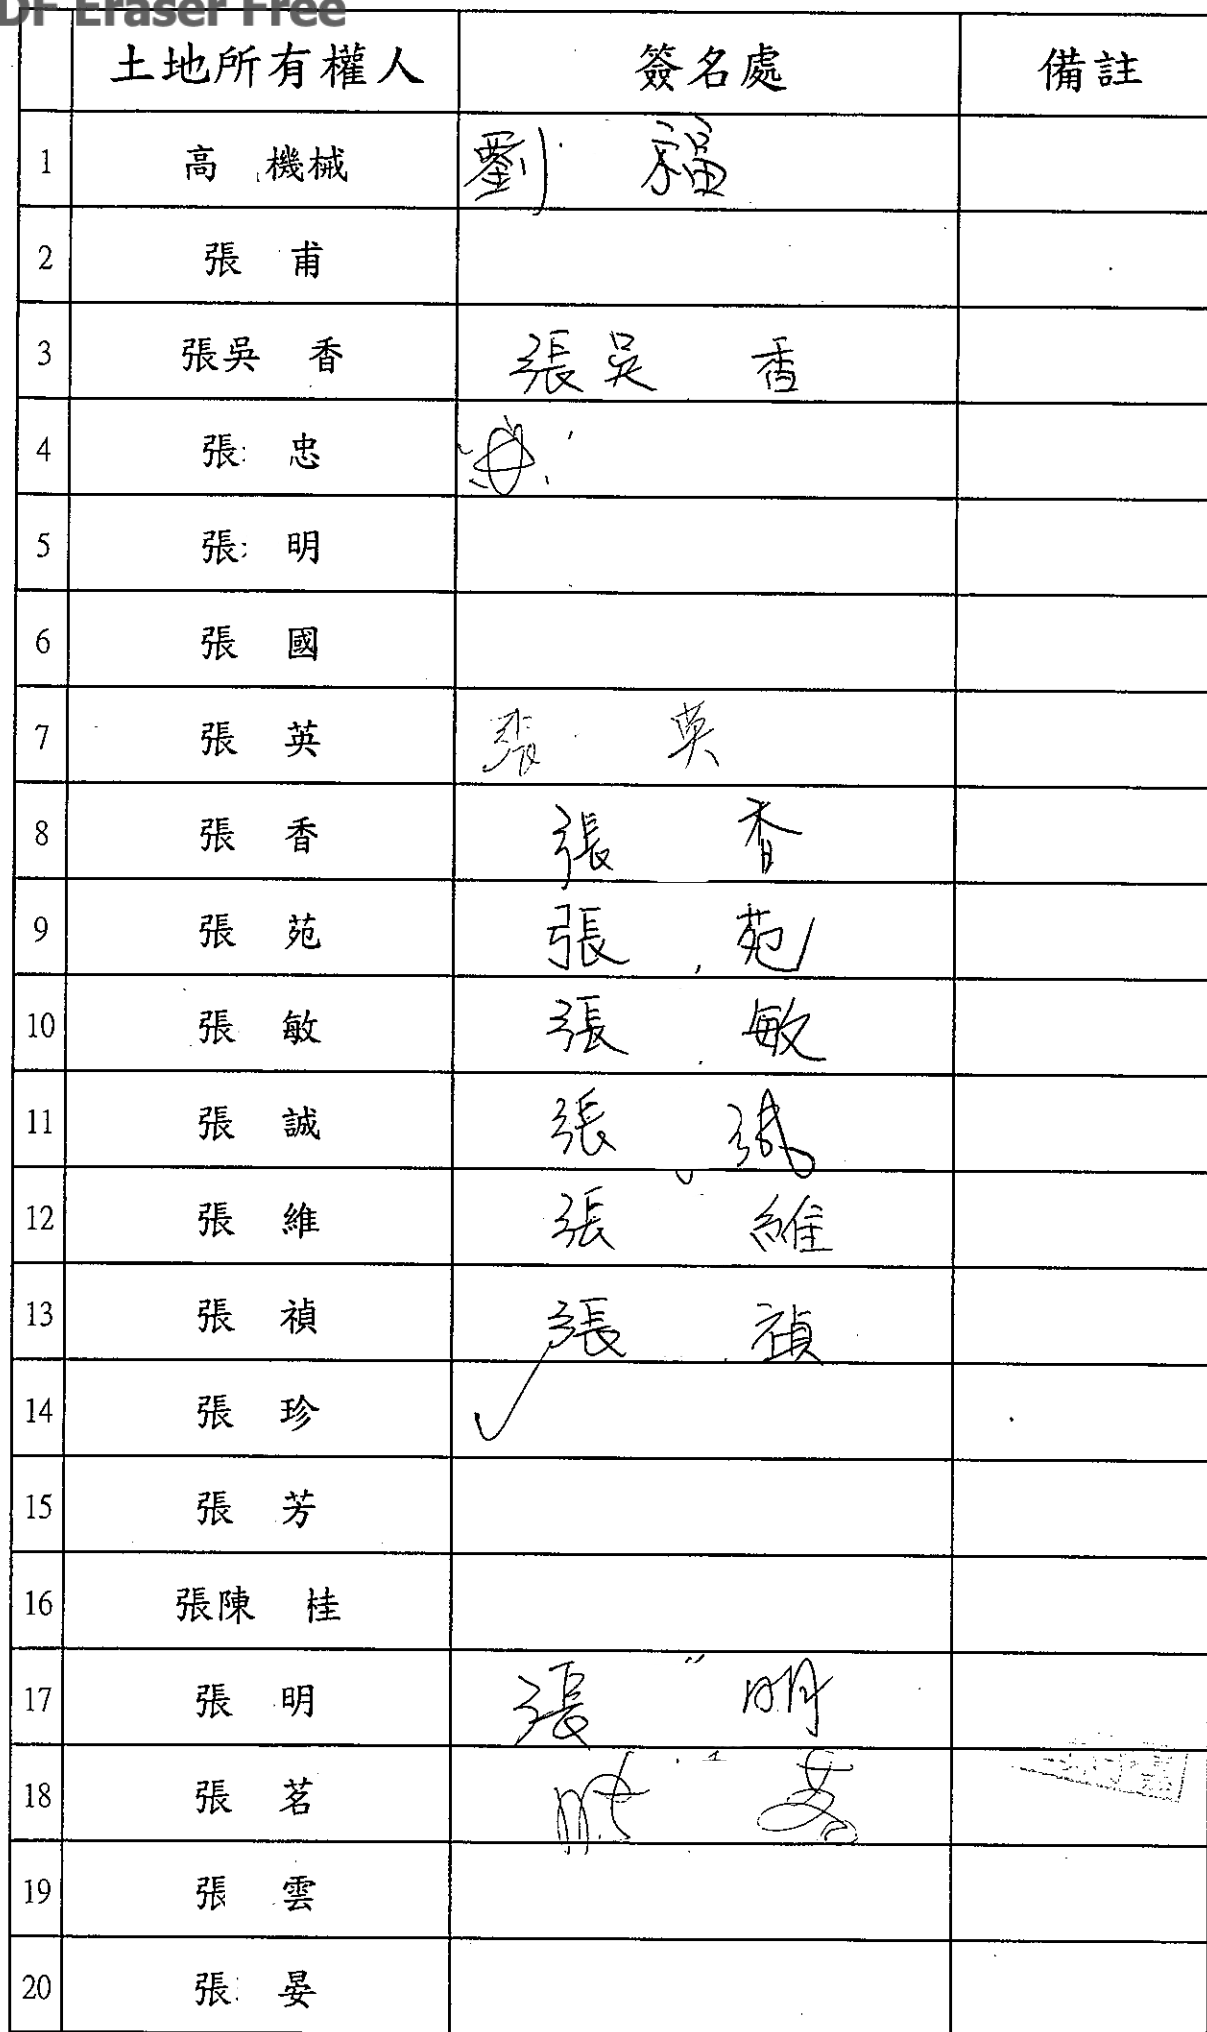 DF Eraser Free
土地所有權人 簽名處 備註
1 高 機械 劉 福
2 張 甫
3 張吳 香 張吳 香
4 張 忠
5 張 明
6 張 國
7 張 英 張 英
8 張 香 張 香
9 張 苑 張 苑
10 張 敏 張 敏
11 張 誠 張 誠
12 張 維 張 維
13 張 禎 張 禎
14 張 珍
15 張 芳
16 張陳 桂
17 張 明 張 明
18 張 茗
19 張 雲
20 張 晏